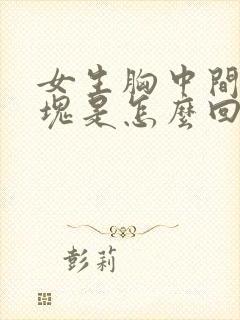 女生胸中間
塊是怎麼回
彭莉